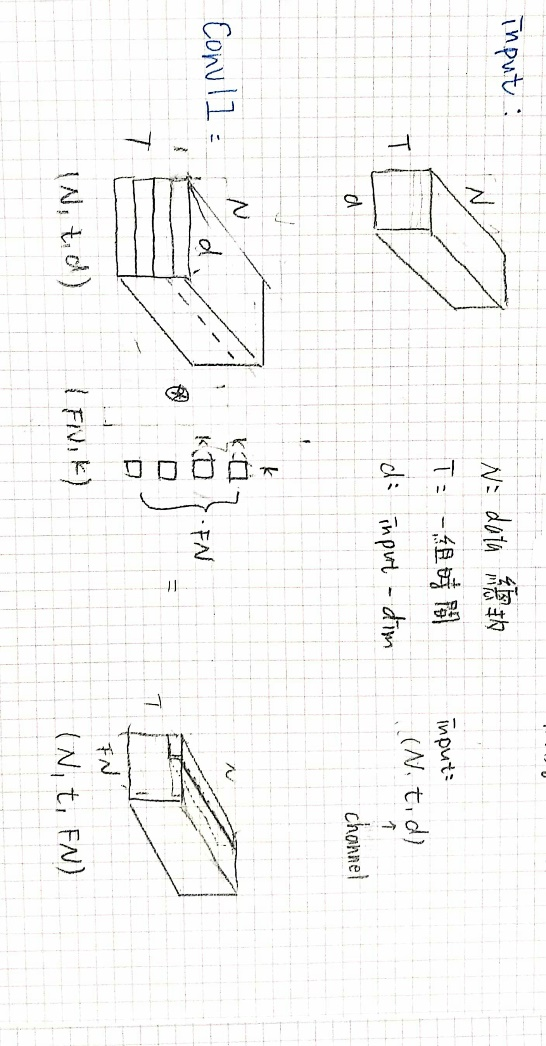 input:
T
N
d
N: data 總數
T: 一組時間
d: input-dim
input:
(N, t, d)
↑
channel
Conv1D:
T
1
N
d
(N, t, d)
⊛
k
k
k
FN
(FN, k)
=
T
N
FN
(N, t, FN)